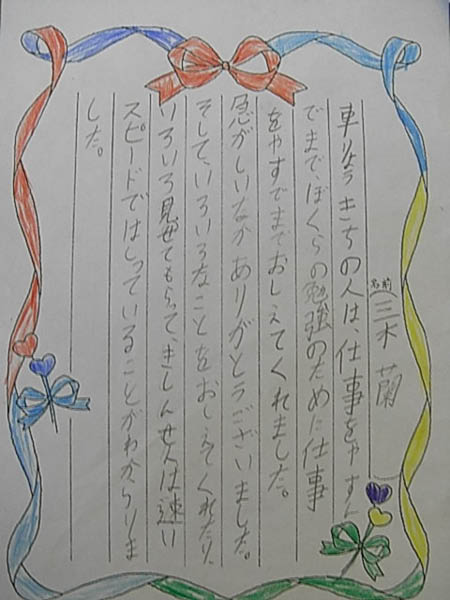 名前(三木 蘭)
車りょうきちの人は、仕事をやすん
でまで、ぼくらの勉強のために仕事
をやすでまでおしえてくれました。
急がしいなかありがとうございました。
そして、いろいろなことをおしえてくれたり、
いろいろ見せてもらって、きしんせんは速い
スピードではしっていることがわからりま
した。